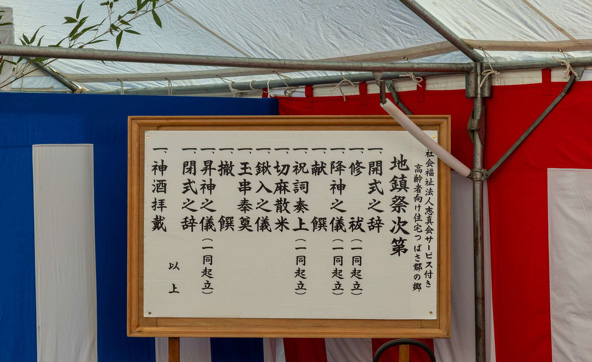 社会福祉法人志真会サービス付き
高齢者向け住宅つばさ郷の郷
地鎮祭次第
一開式之辞
一修祓(一同起立)
一降神之儀(一同起立)
一献饌
一祝詞奏上(一同起立)
一切麻散米
一鍬入之儀
一玉串奉奠
一撤饌
一昇神之儀(一同起立)
一閉式之辞
一神酒拝戴
以上